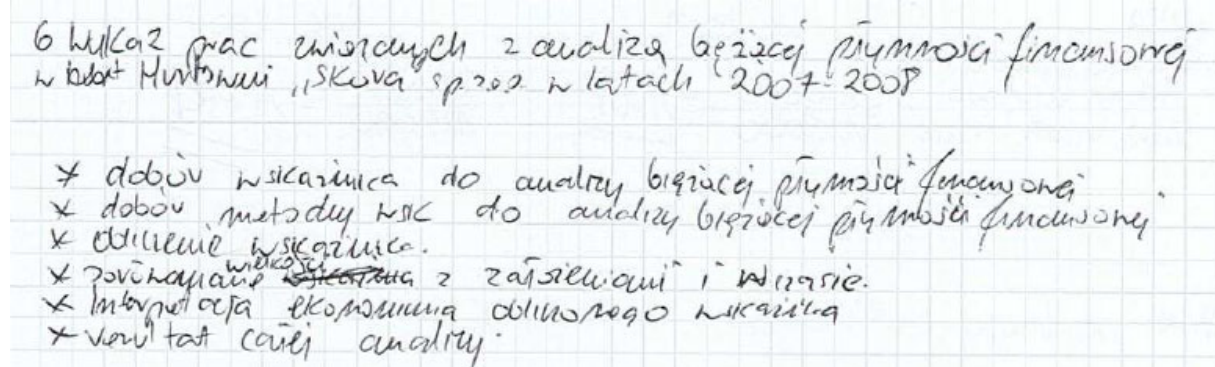 6 Wykaz prac związanych z analizą bieżącej płynności finansowej
w Hurtowni „Skóra" sp. z o.o. w latach 2007-2008
* dobór wskaźnika do analizy bieżącej płynności finansowej
* dobór metody wsk do analizy bieżącej płynności finansowej
* obliczenie wskaźnika.
* porównanie wielkości z założeniami i w czasie.
* Interpretacja ekonomiczna obliczonego wskaźnika
* rezultat całej analizy.